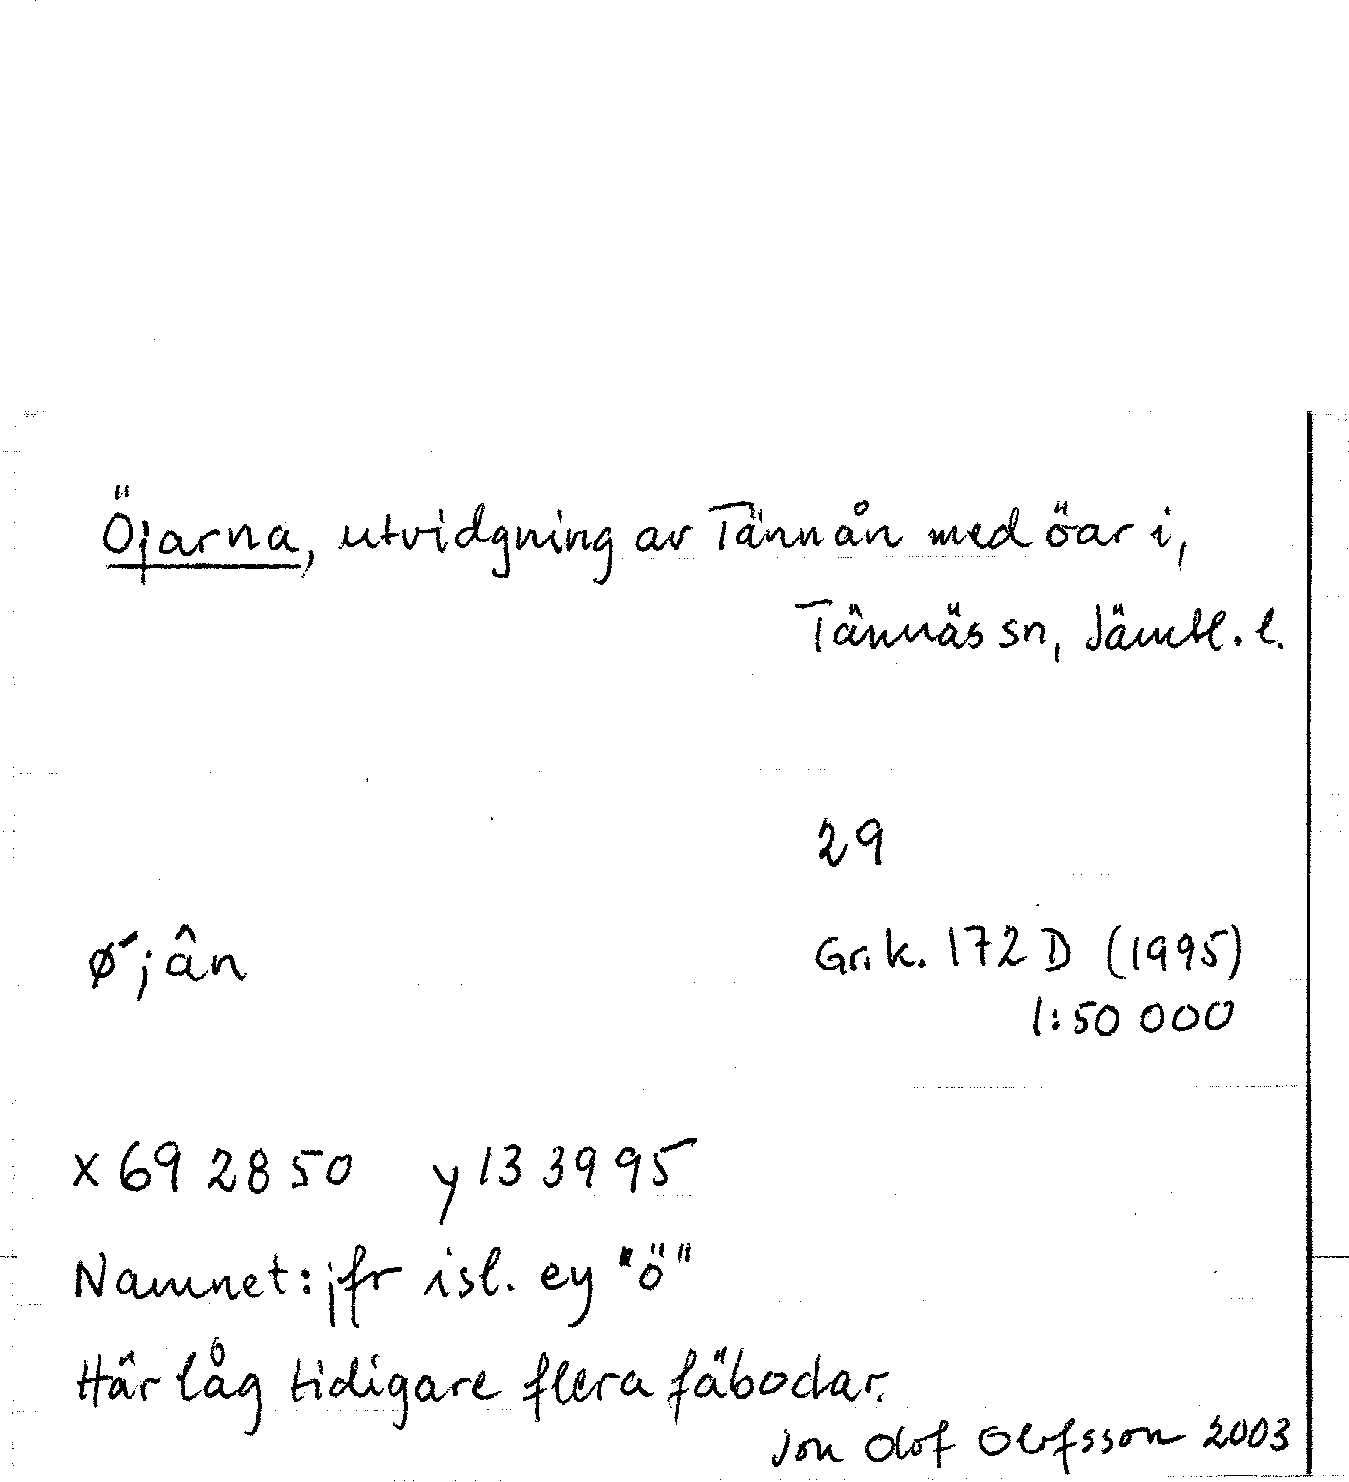 Öjarna, utvidgning av Tännån med öar i,
Tännäs sn, Jämtl. l.
29
ǿjân
Gr.k. 172 D (1995)
1:50 000
x 69 28 50 y 13 39 95
Namnet: jfr isl. ey "ö"
Här låg tidigare flera fäbodar.
Jon Olof Olofsson 2003